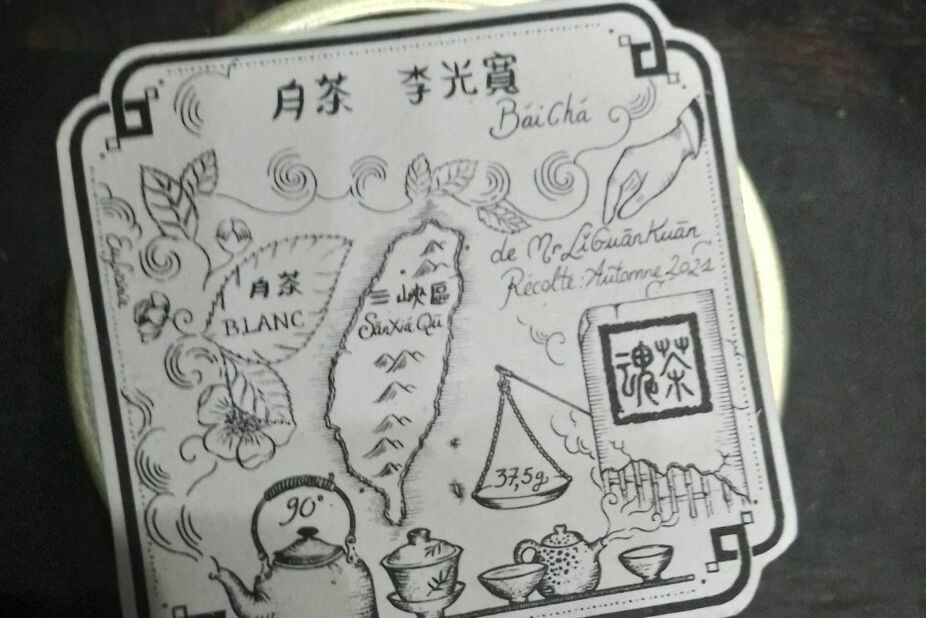 白茶 李光寶
Bái Chá
de Mr Lǐ Guān Kuān
Récolte: Automne 2021
白茶
BLANC
三峽區
Sān Xiá Qū
茶魂
37,5g
90°